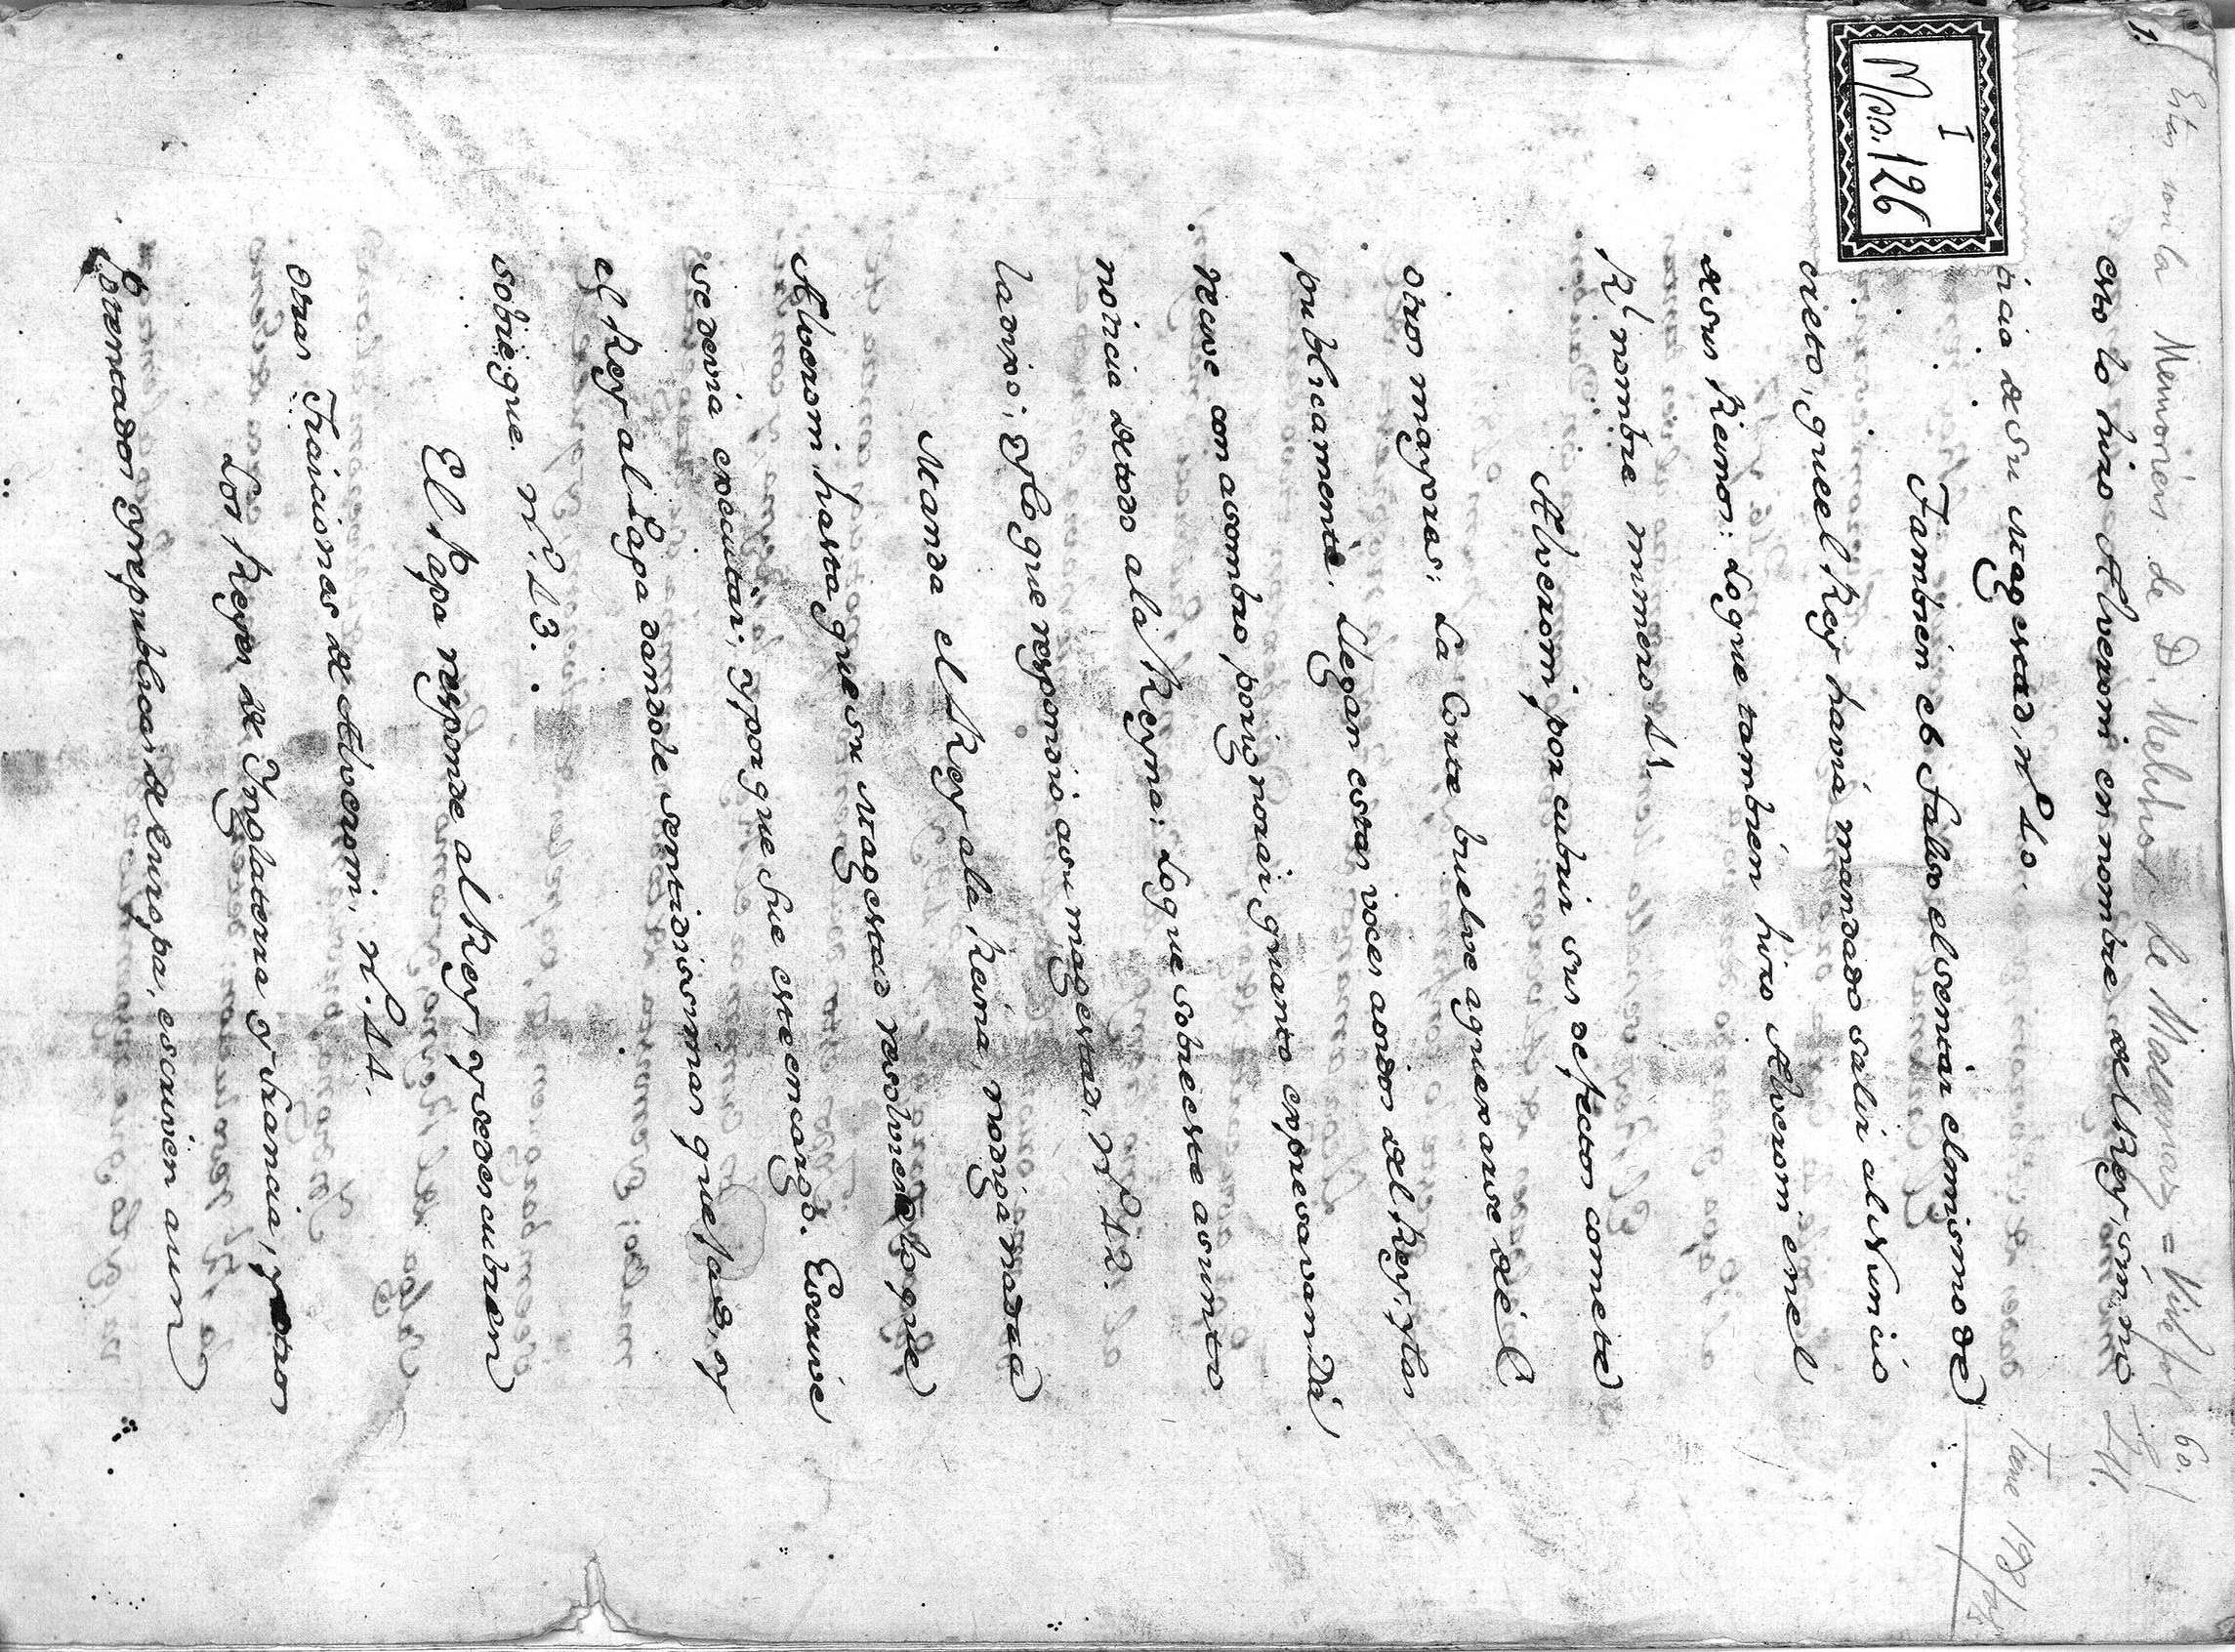 1.
Estas son la Memorias de D. Melchor de Macanaz =
Tiene 198 fojas
I
Mss. 126
esto lo hizo Alveroni en nombre del Rey, sin no
ticia de su Magestad, nº 10.
Tambien es falso el sentir el mismo de
creto, que el Rey havia mandado salir al Nuncio
de sus Reinos: Lo que tambien hizo Alveroni en el
Rl nombre numero 11.
Alveroni, por cubrir sus defectos comete
otros mayores: La Corte buelve a quexarse de él
publicamente. Llegan estas voces a oidos del Rey, y las
recive con asombro, por ignorar quanto expresavan Dá
noticia de todo a la Reyna: Lo que sobre este asunto
la dixo; y lo que respondio a su magestad. nº 12.
Manda el Rey a la Reina, no diga nada a
Alveroni hasta que su Magestad resolviese lo que
se devia executar; y por que fue este encargo. Escrive
el Rey al Papa dandole sentidisimas quejas, y
sobre que nº 13.
El Papa responde al Rey, y se descubren
otras Traiciones de Alveroni. nº 14.
Los Reyes de Inglaterra y Francia, y otros
Potentados y republicas de Europa, escriven a un